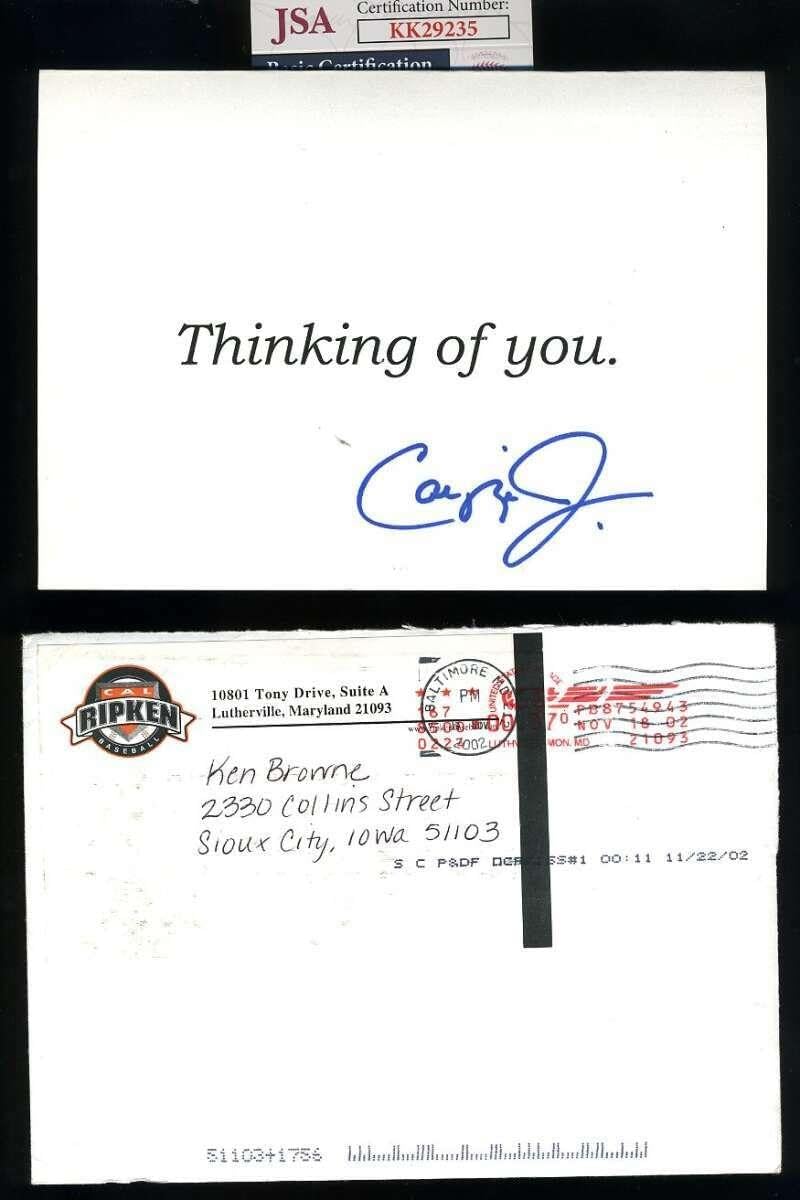 JSA
Certification Number:
KK29235
Basic Certification
Thinking of you.
CAL
RIPKEN
BASEBALL
10801 Tony Drive, Suite A
Lutherville, Maryland 21093
BALTIMORE
PM
2002
PB8754943
NOV 18 02
21093
Ken Browne
2330 Collins Street
Sioux City, Iowa 51103
S C P&DF
#1 00:11 11/22/02
51103+1756